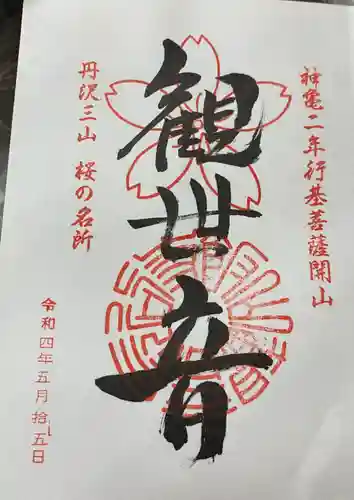 神亀二年行基菩薩開山
観世音
丹沢三山 桜の名所
令和四年五月拾五日